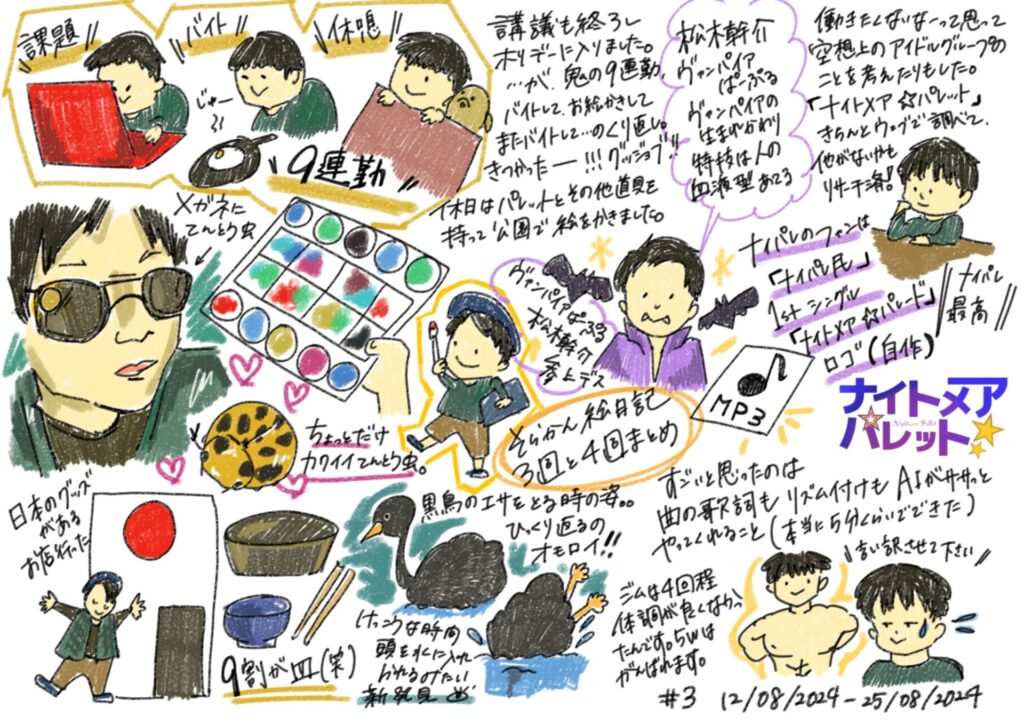 課題
バイト
休憩
じゅー
9連勤
講議も終ろし
ホリデーに入りました。
…が、鬼の9連勤。
バイトして、お絵かきして
またバイトして…のくり返し。
きつかったー!!!グッジョブ!!
休日はパレットとその他道具を
持って公園で絵をかきました。
松木幹介
ヴァンパイア
ぱーぷる
ヴァンパイアの
生まれかわり
特技は人の
血液型あてる
働きたくないなーって思って
空想上のアイドルグループの
ことを考えたりもした。
「ナイトメア☆パレット」
きちんとウェブで調べて、
他がないかも
リサーチ済!
メガネに
てんとう虫
ヴァンパイアぱーぷる
松木幹介
参上デス
ナイパレのファンは
「ナイパレ民」
1stシングル
「ナイトメア☆パレード」
ロゴ(自作)
ナイパレ
最高
MP3
ナイトメア
パレット
ちょっとだけ
カワイイてんとう虫。
そらかん絵日記
3回と4回まとめ
日本のグッズ
がある
お店行った
9割が皿(笑)
黒鳥のエサをとる時の姿。。
ひっくり返るの
オモロイ!!
けっこうな時間
頭を水に入れ
られるみたい
新発見
すごいと思ったのは
曲の歌詞も リズム付けも AIがササッと
やってくれること(本当に5分くらいでできた)
言い訳させて下さい
ジムは4回程
体調が良くなかっ
たんです。5Wは
がんばれます。
#3 12/08/2024-25/08/2024